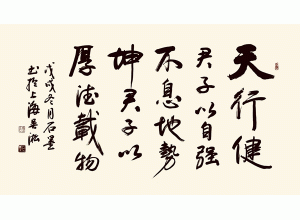 天行健
君子以自强
不息地势
坤君子以
厚德载物
戊戌冬月石墨
书于上海吴淞